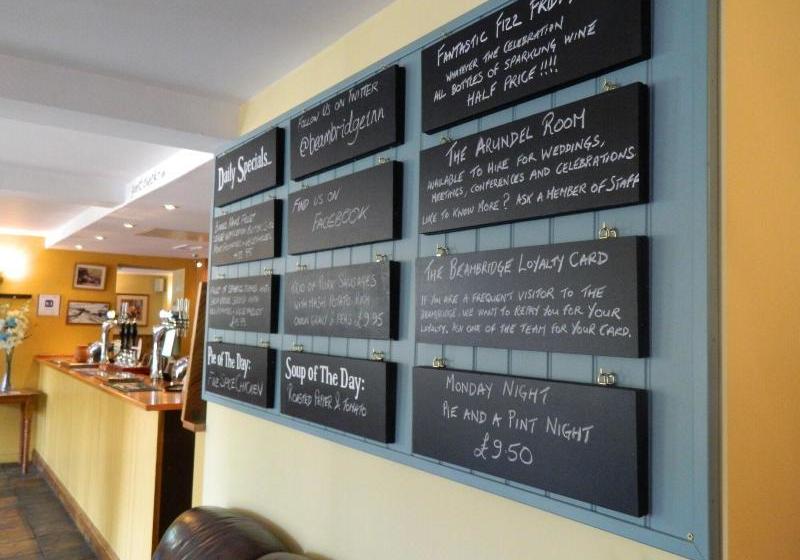 Daily Specials..
Pie of The Day:
FOLLOW US ON TWITTER
@beambridgeinn
FIND US ON
FACEBOOK
TRIO OF PORK SAUSAGES
WITH MASH POTATO, RICH
ONION GRAVY & PEAS £9.95
Soup of The Day:
ROASTED PEPPER & TOMATO
FANTASTIC FIZZ FRIDAY
WHATEVER THE CELEBRATION
ALL BOTTLES OF SPARKLING WINE
HALF PRICE!!!!
THE ARUNDEL ROOM
AVAILABLE TO HIRE FOR WEDDINGS,
MEETINGS, CONFERENCES AND CELEBRATIONS
LIKE TO KNOW MORE? ASK A MEMBER OF STAFF
THE BEAMBRIDGE LOYALTY CARD
IF YOU ARE A FREQUENT VISITOR TO THE
BEAMBRIDGE, WE WANT TO REPAY YOU FOR YOUR
LOYALTY, ASK ONE OF THE TEAM FOR YOUR CARD.
MONDAY NIGHT
PIE AND A PINT NIGHT
£9.50